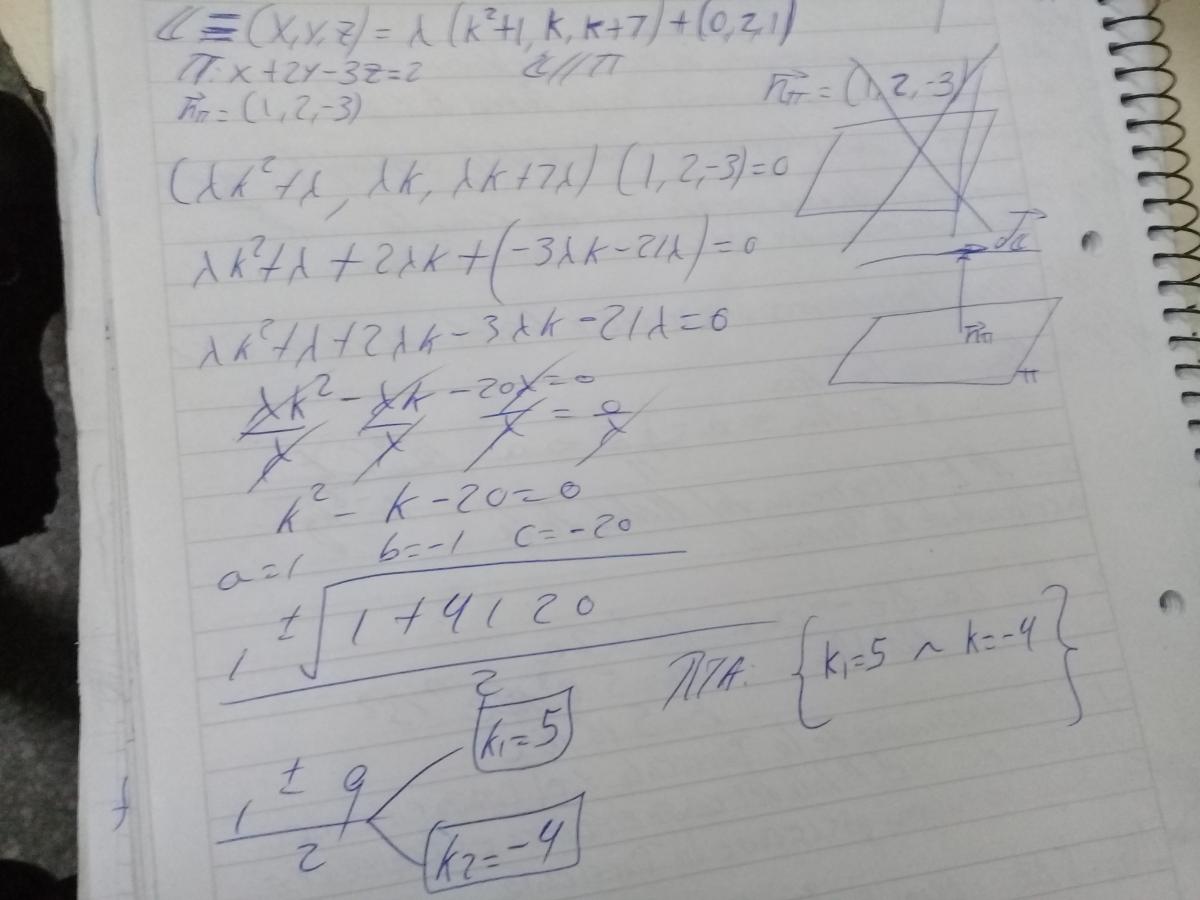 𝓛 ≡ (x, y, z) = λ (k²+1, k, k+7) + (0, 2, 1)
π: x + 2y - 3z = 2 𝓛 // π
n⃗π = (1, 2, -3) n⃗π = (1, 2, -3)
(λk²+λ, λk, λk+7λ) (1, 2, -3) = 0
λk²+λ + 2λk + (-3λk - 21λ) = 0
d⃗𝓛
λk²+λ+2λk - 3λk - 21λ = 0
n⃗π
π
λk²/λ - λk/λ - 20λ/λ = 0/λ
k² - k - 20 = 0
a = 1 b = -1 c = -20
1 ± √1 + 4 1 20
2
RTA: {k₁=5 ∧ k=-4}
k₁=5
1 ± 9
2
k2=-4